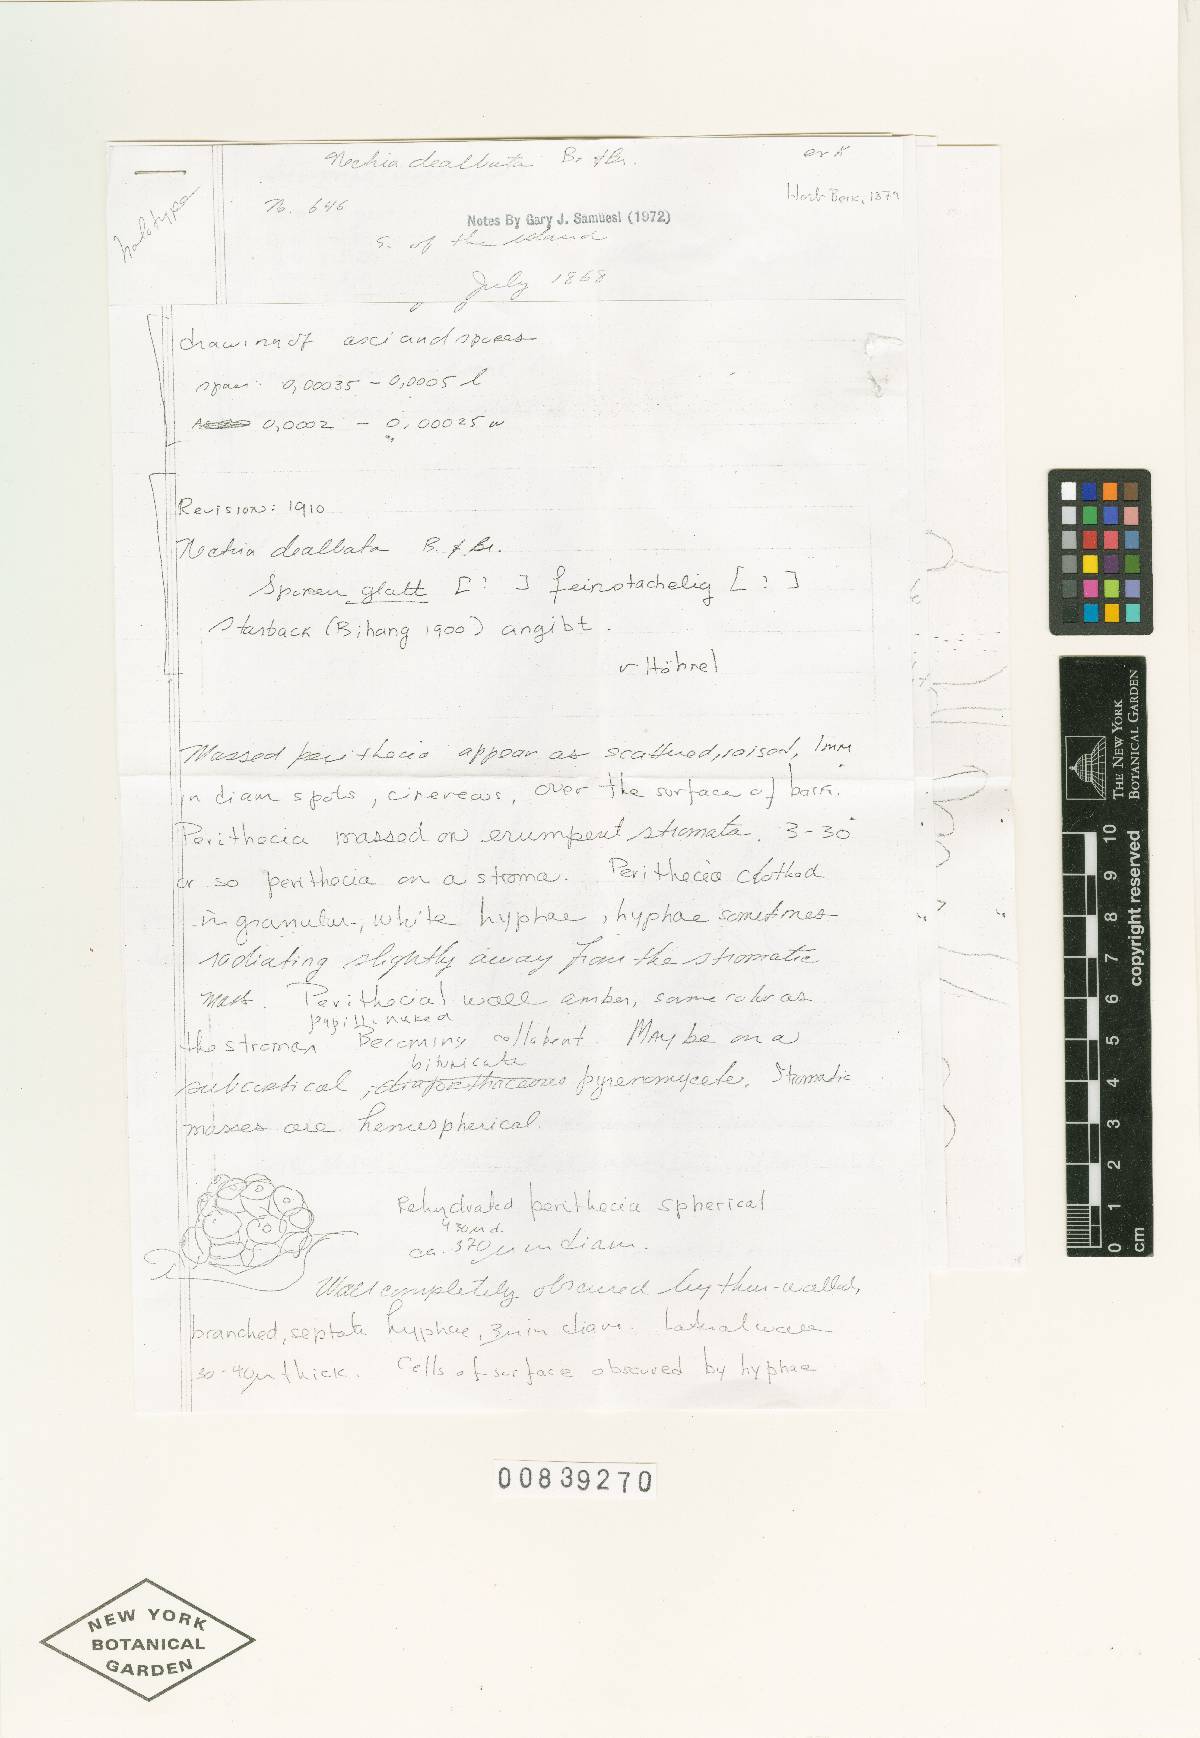 Nectria dealbata B. & Br.
holotype
No. 646
Herb Berk, 1879
Notes By Gary J. Samuesl (1972)
S. of the island
July 1868
drawing of asci and spores
spore: 0,00035 - 0,0005 l
0,0002 - 0,00025 w
Revision: 1910
Nectria dealbata B. & Br.
Sporen glatt [ ! ] feinstachelig [ ! ]
Starback (Bihang 1900) angibt.
v Höhnel
Massed perithecia appear as scattered, raised, 1mm
in diam spots, cinereous, over the surface of bark.
Perithecia massed on erumpent stromata. 3-30
or so perithecia on a stroma. Perithecia clothed
in granular, white hyphae, hyphae sometimes
radiating slightly away from the stromatic
mass. Perithecial wall amber, same color as
papilla naked
the stroma. Becoming collabent. May be on a
bitunicate
subcortical, pyrenomycete. Stromatic
masses are hemispherical.
Rehydrated perithecia spherical
430 µ d.
ca. 370 µ in diam.
Wall completely obscured by thin-walled,
branched, septate hyphae, 3µ in diam. Lateral wall
30-40µ thick. Cells of surface obscured by hyphae
00839270
NEW YORK
BOTANICAL
GARDEN
THE NEW YORK
BOTANICAL GARDEN
copyright reserved
0 1 2 3 4 5 6 7 8 9 10
cm